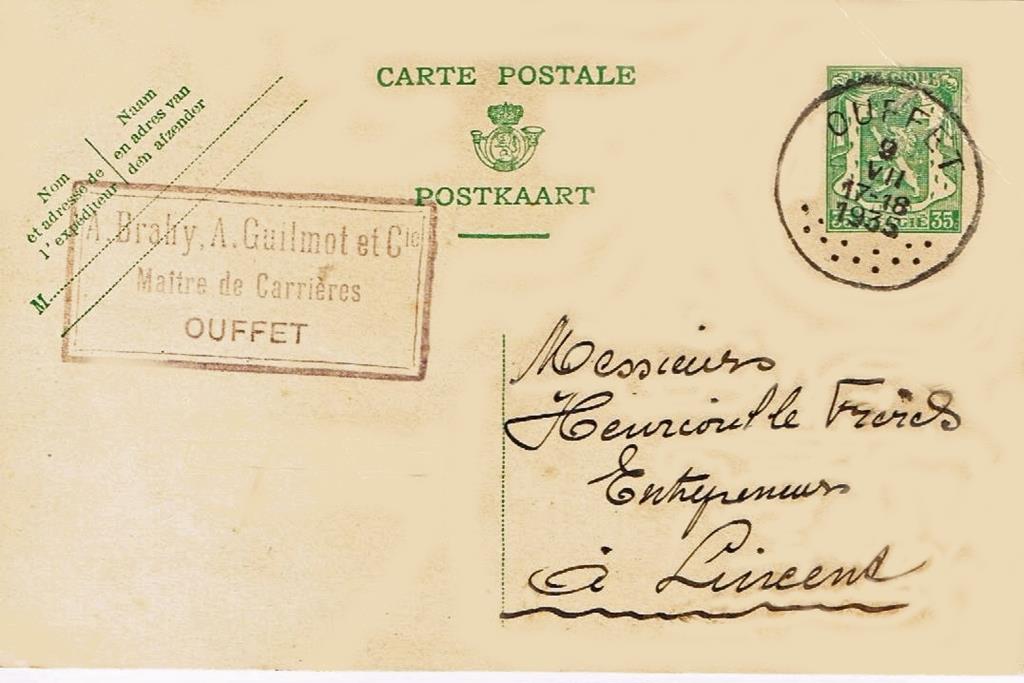 CARTE POSTALE
POSTKAART
Nom
et adresse de
l'expéditeur
Naam
en adres van
den afzender
M
A. Brahy, A. Guilmot et Cie
Maître de Carrières
OUFFET
BELGIQUE
OUFFET
9
VII
17-18
1935
35c BELGIE 35c
Messieurs
Frères
Entrepreneurs
à Lincent